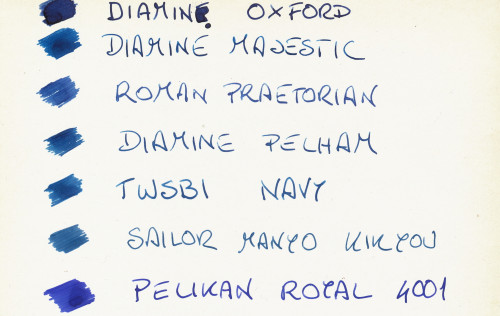 DIAMINE OXFORD
DIAMINE MAJESTIC
ROMAN PRAETORIAN
DIAMINE PELHAM
TWSBI NAVY
SAILOR MANYO KIKYOU
PELIKAN ROYAL 4001